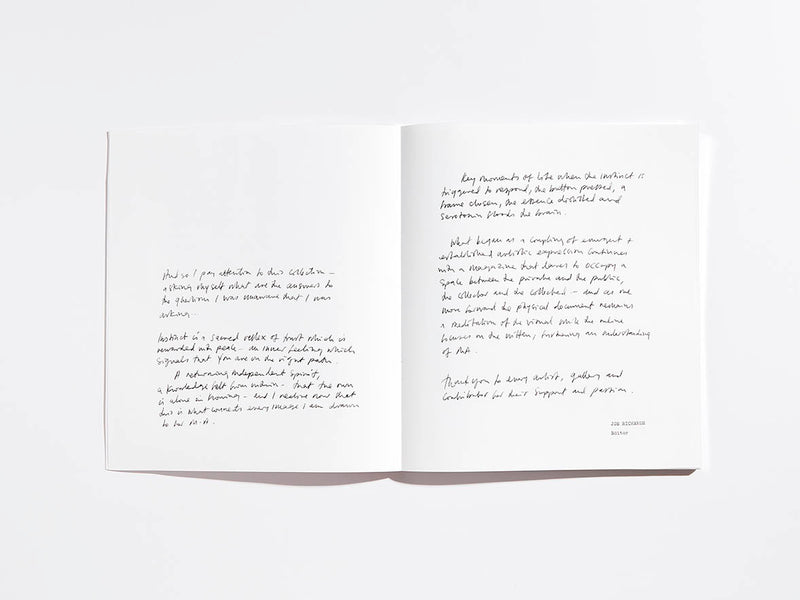 And so I pay attention to this collection –
asking myself what are the answers to
the questions I was unaware that I was
asking.
Instinct is a sacred reflex of trust which is
rewarded with peace – an inner feeling which
signals that you are on the right path.
A returning independent spirit,
a knowledge felt from within – that the own
is alone in knowing – and I realise now that
this is what connects every image I am drawn
to for M.A.
Key moments of life when the instinct is
triggered to respond, the button pressed, a
frame chosen, the essence distilled and
serotonin floods the brain.
What began as a coupling of emergent +
established artistic expression continues
with a magazine that dares to occupy a
space between the private and the public,
the collector and the collected – and as we
move forward the physical document remains
a meditation of the visual while the online
focuses on the written, furthering an understanding
of M.A.
Thank you to every artist, gallery and
contributor for their support and passion.
JOE
Editor